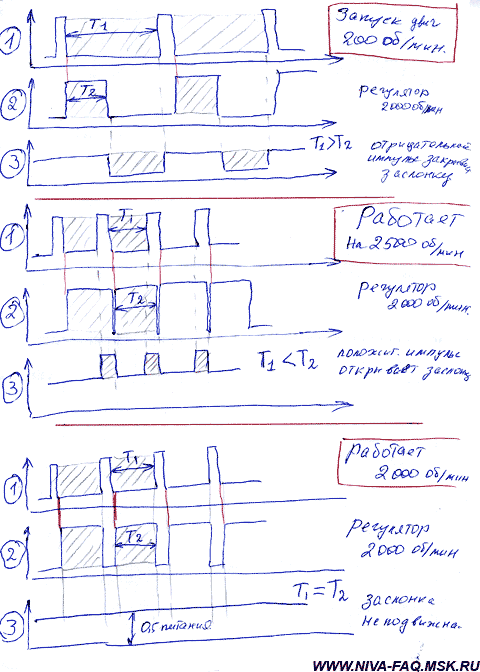 Запуск двиг
200 об/мин.
1
T1
2
T2
Регулятор
2000 об/мин
3
T1>T2
отрицательный
импульс закрывает
заслонку
Работает
На 2500 об/мин
1
T1
Регулятор
2000 об/мин.
2
T2
3
T1<T2
положит. импульс
открывает
Работает
2000 об/мин
1
T1
Регулятор
2000 об/мин
2
T2
T1=T2
Заслонка
неподвижна.
3
0,5 питания
WWW.NIVA-FAQ.MSK.RU